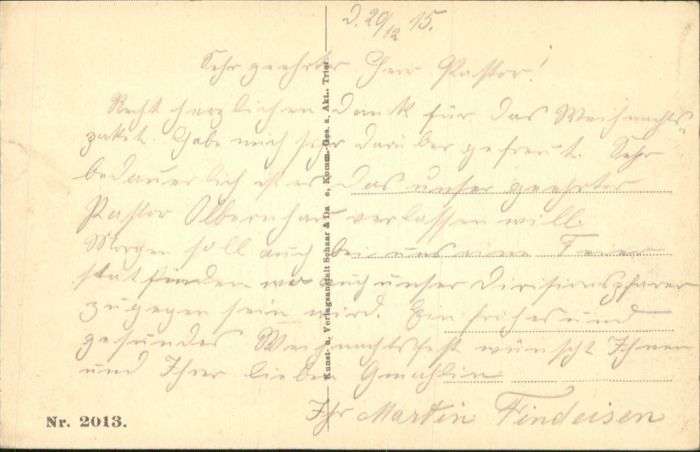 D. 20/12 15.
Sehr geehrter Herr Pastor!
Recht herzlichen dank für das Weihnachts-
paket. Habe mich sehr darüber gefreut. Sehr
bedauerlich ist es das unser geehrter
Pastor Olbernhau verlassen will.
Morgen soll auch bei uns eine Feier
statfinden wo auch unser Divisionspfarrer
zugegen sein wird. Ein frohes und
gesundes Weihnachtsfest wünscht Ihnen
und Ihrer lieben Gmahlin
Ihr Martin Findeisen
Kunst- u. Verlagsanstalt Schaar & Da e, Komm.-Ges. a. Akt., Trier
Nr. 2013.